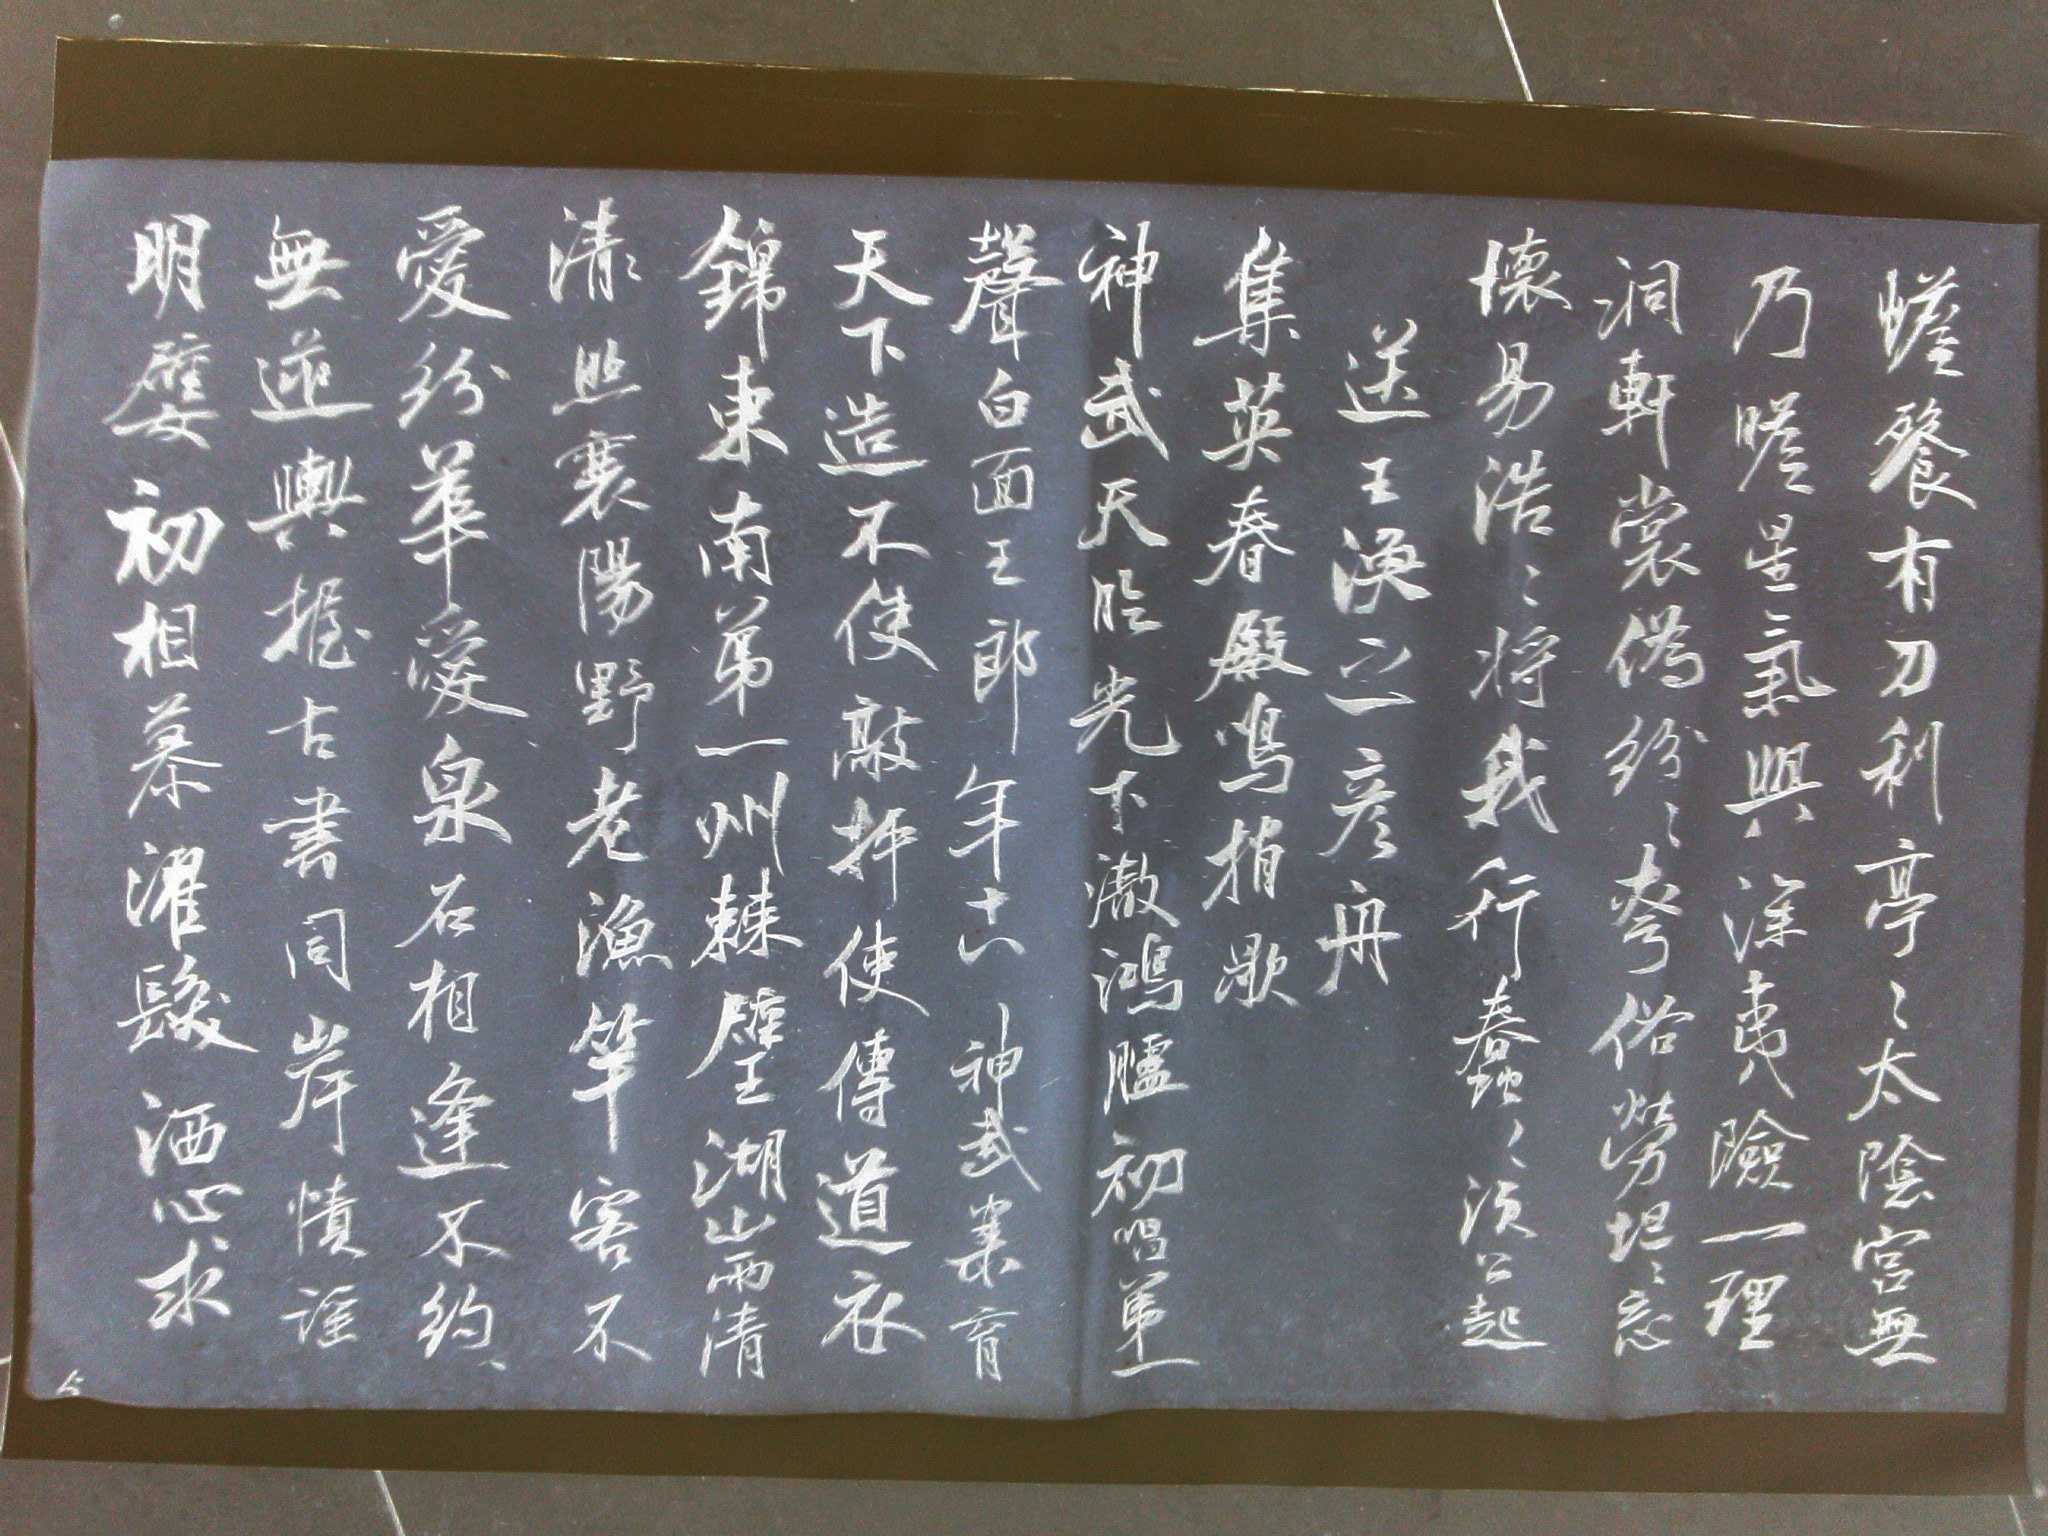 蟾餐有刀利亭〻太陰宮無
乃瞻星氣興深夷險一理
洞軒裳偽紛〻夸俗勞坦〻忘
懷易浩〻將我行蠢〻須公起
送王渙之彦舟
集英春殿鳴捎歇
神武天臨光下澈鴻臚初唱第一
聲白面王郎年十八神武樂育
天下造不使敲抨使傳道衣
錦東南第一州棘璧湖山兩清
清〻照襄陽野老漁竿客不
愛紛華愛泉石相逢不約〻
無逆輿握古書同岸幘淫
明嬖初相慕濯髮洒心求